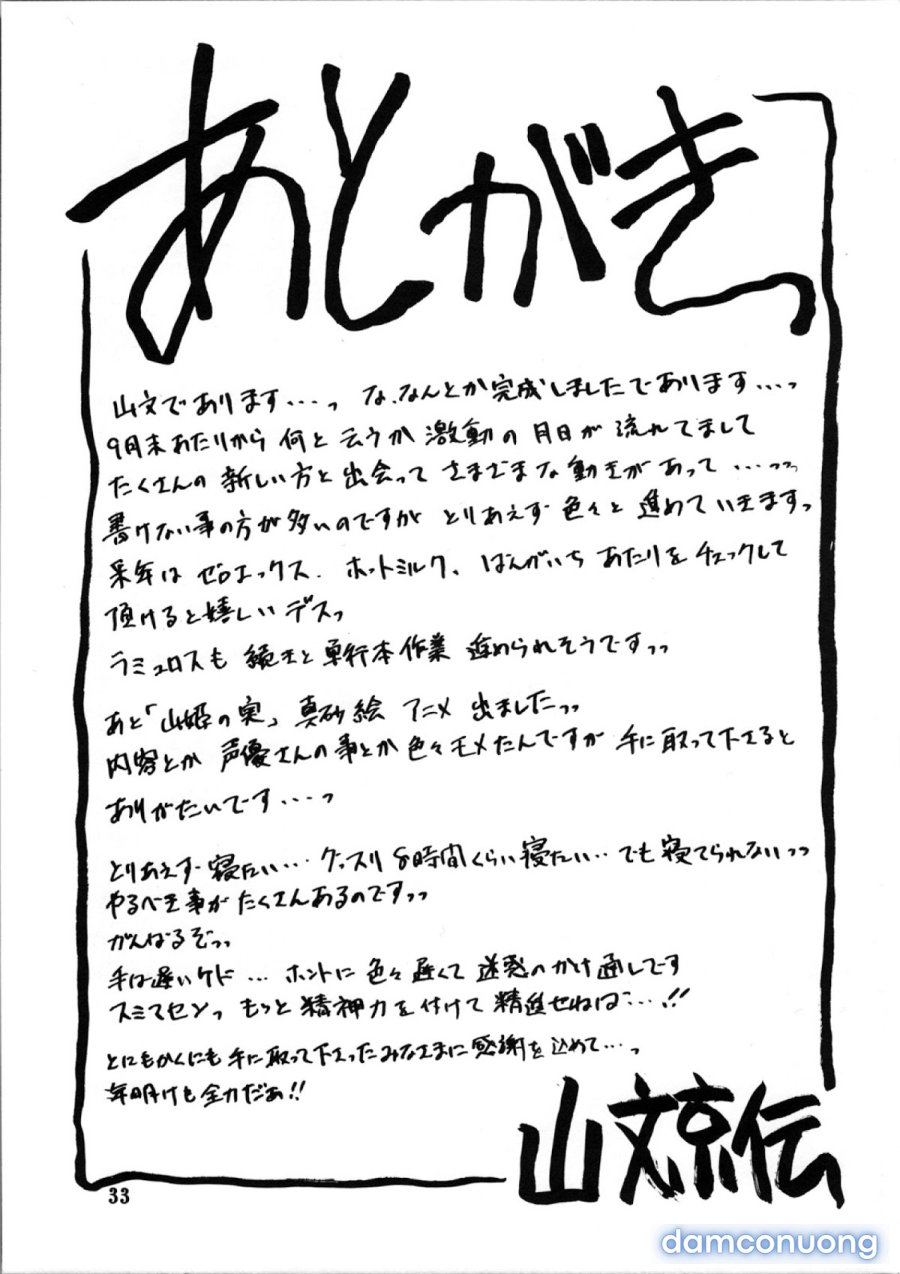 あとがき
山文であります・・・っ な、なんとか完成しましたであります・・・っ
9月末あたりから 何と云うか 激動の 月日が 流れてまして
たくさんの 新しい方と 出会って さまざまな 動きがあって ・・・っっ
書けない事の方が多いのですが とりあえず 色々と 進めていきますっ
来年は ゼロエックス、ホットミルク、ばんがいち あたりを チェックして
頂けると嬉しい デスっ
ラミュロスも 続きと 単行本作業 進められそうですっっ
あと「山姫の実」 真砂絵 アニメ 出ましたっっ
内容とか 声優さんの事とか 色々モメたんですが 手に取って下さると
ありがたいです・・・っ
とりあえず 寝たい・・・ グッスリ 8時間くらい 寝たい・・・ でも 寝てられないっっ
やるべき事が たくさんあるのですっっ
がんばるぞっっ
手は遅いケド ・・・ ホントに 色々 遅くて 迷惑のかけ通しです
スミマセンっ もっと 精神力を付けて 精進せねば・・・!!
とにもかくにも 手に取って下さったみなさまに 感謝を込めて・・・っ
年明けも全力だぁ!!
山文京伝
33
damconuong